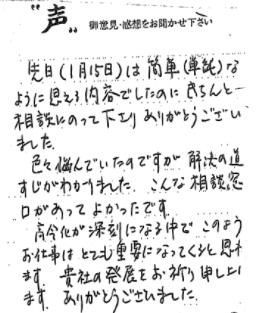 "声" 御意見・感想をお聞かせ下さい
先日(1月15日)は簡単(単純)な
ように思える内容でしたのにきちんと
相談にのって下さり ありがとうござい
ました。
色々悩んでいたのですが 解決の道
すじがわかりました。こんな相談窓
口があって よかったです。
高令化が深刻になる中で このよう
お仕事は とても重要になってくると思い
ます。貴社の発展をお祈り申し上げ
ます。ありがとうございました。